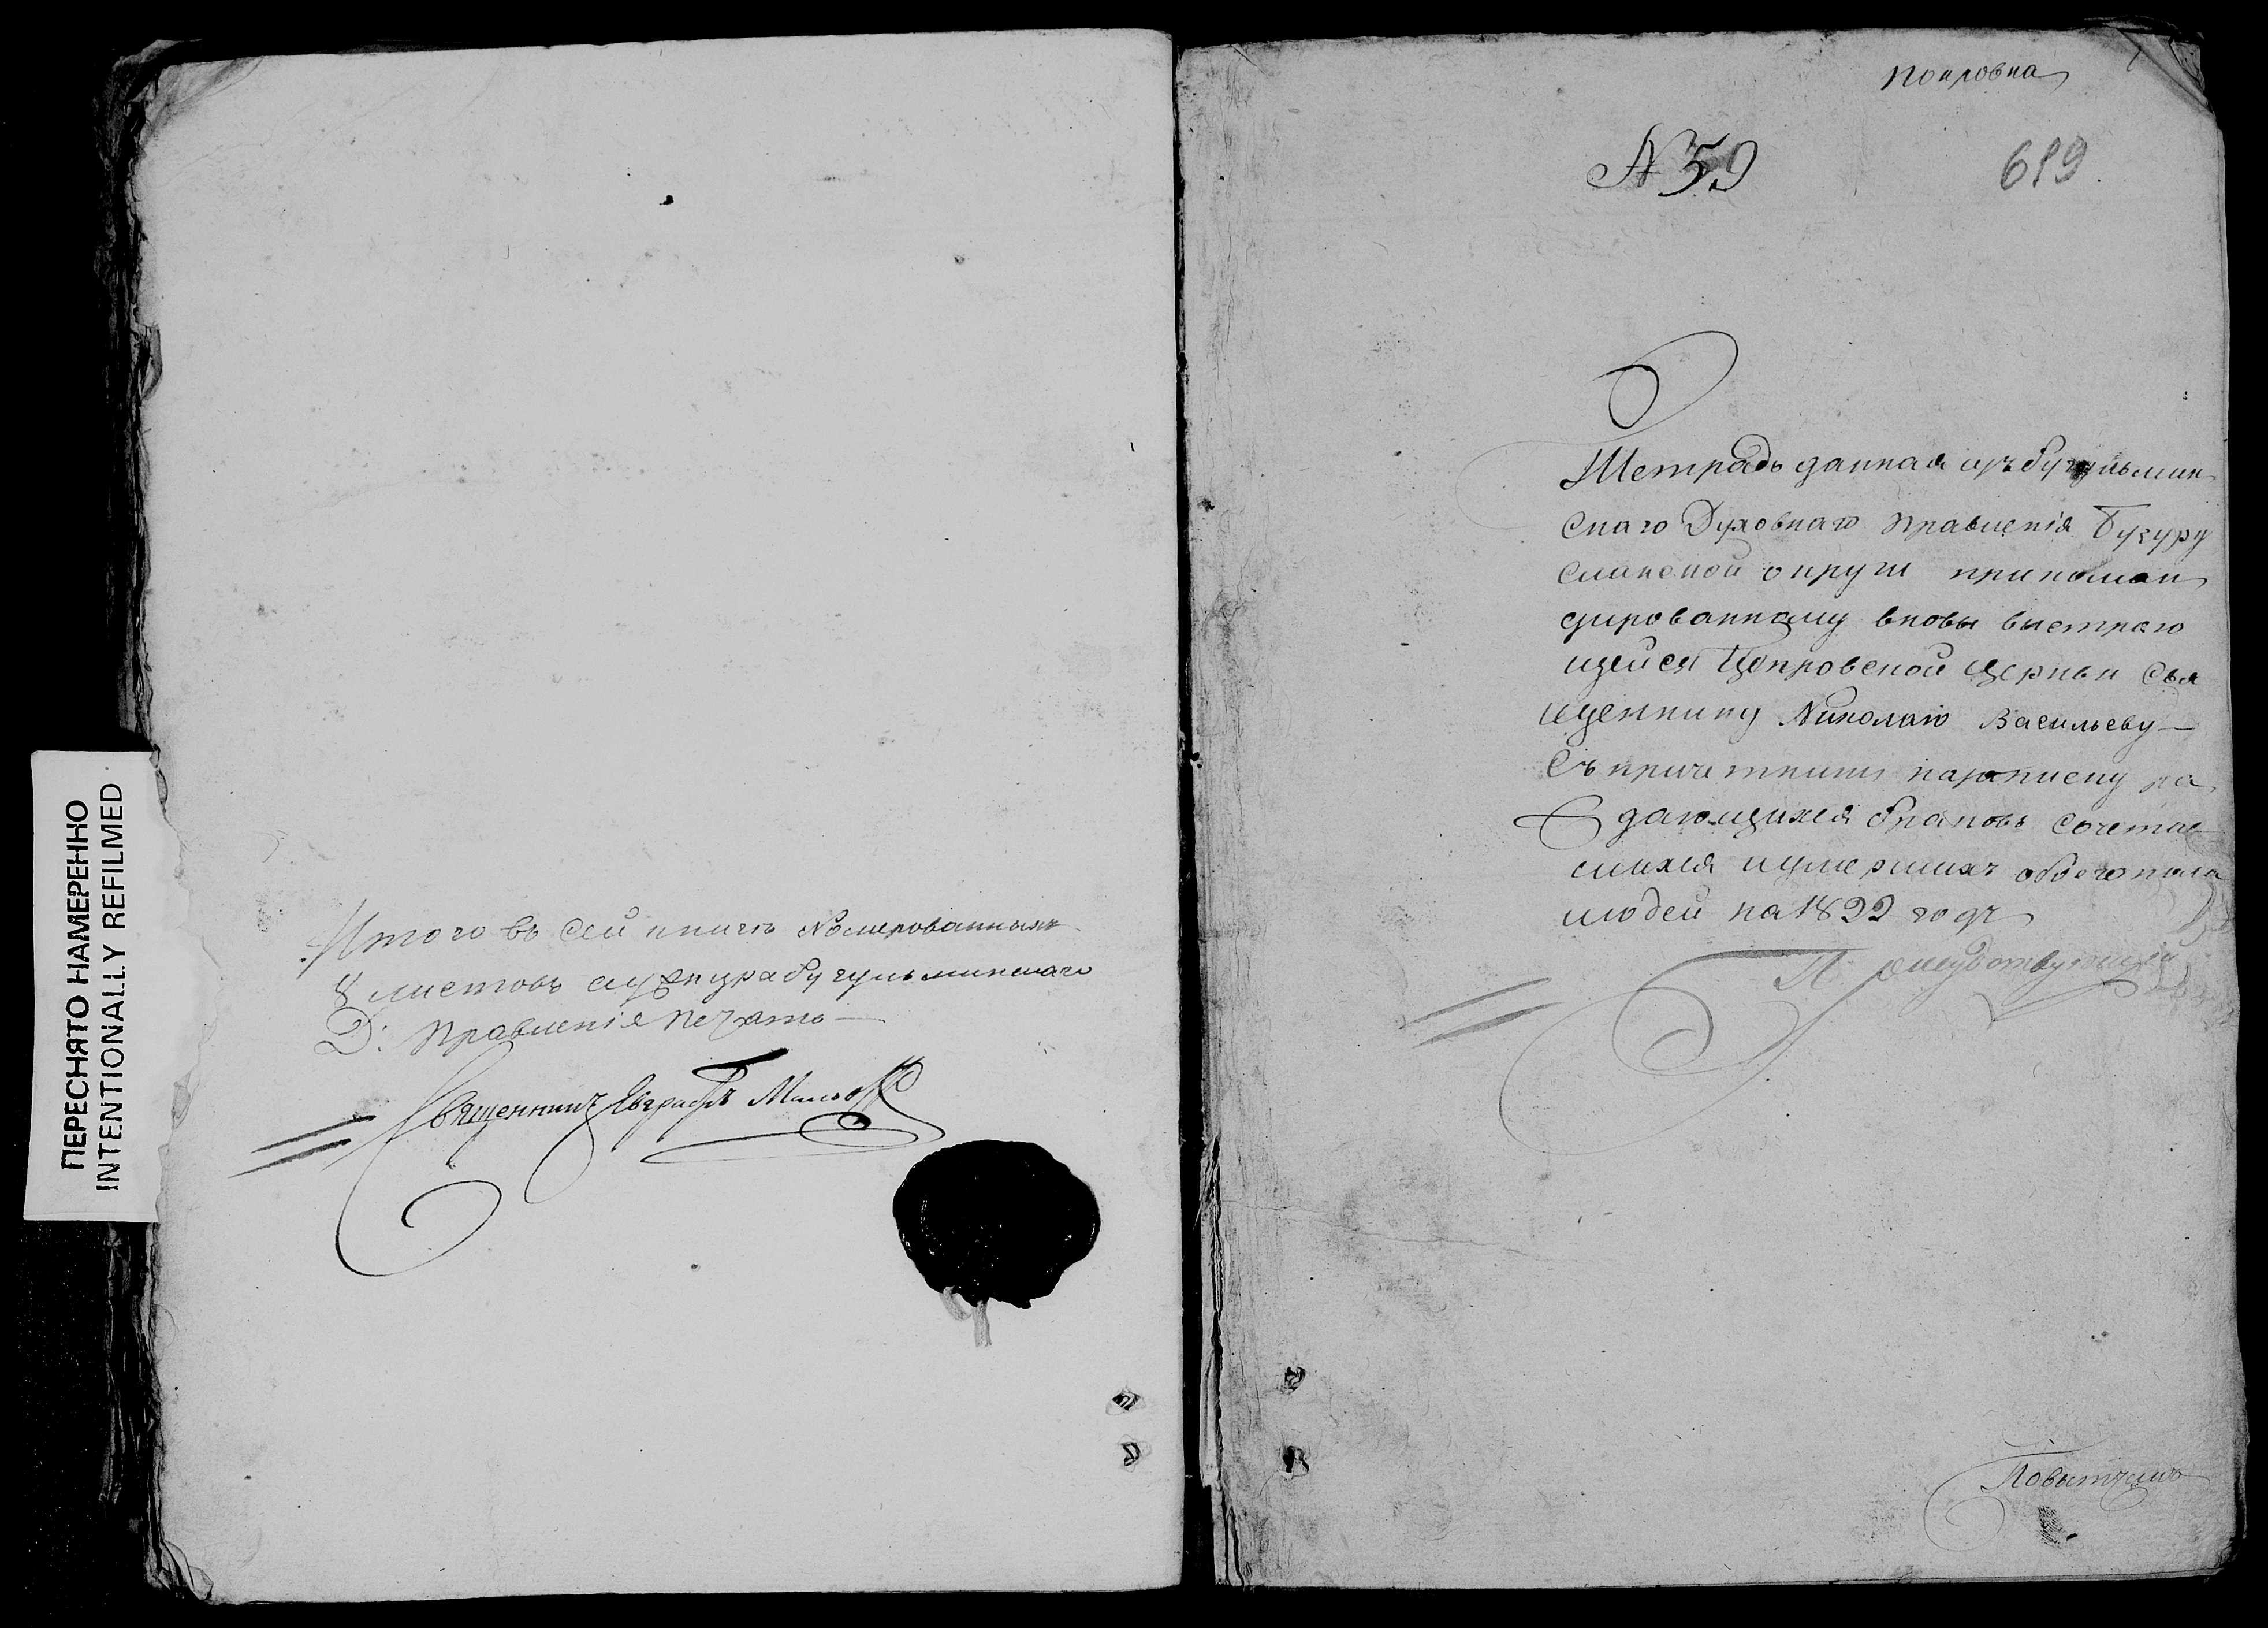 ПЕРЕСНЯТО НАМЕРЕННО
INTENTIONALLY REFILMED
Итого въ сей книгѣ номерованныхъ
8 листовъ бугульминскаго
Д: Правленія печать
Священникъ Евграфъ
Покровка
№ 59
619
Тетрадь данная изъ бугульмин
скаго Духовнаго правленія Бугуру
сланской округи прикоман
дированному вновь выстраю
щейся Покровской церкви Свя
щеннику Николаю Васильеву
Съ причетники на записку ра
ждающихся браковъ сочетав
шихся и умершихъ обоего пола
людей на 1822 годъ
Повытчикъ